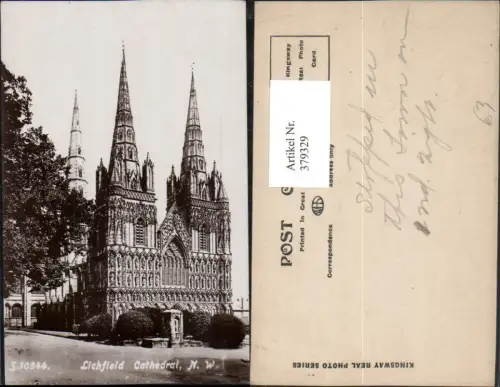 S 10546. Lichfield Cathedral, N. W.
Kingsway
Real Photo
Card.
POST C
Printed in Great
Correspondence
Address only
Artikel Nr.
379329
Stopped in
this town on
and
63
KINGSWAY REAL PHOTO SERIES